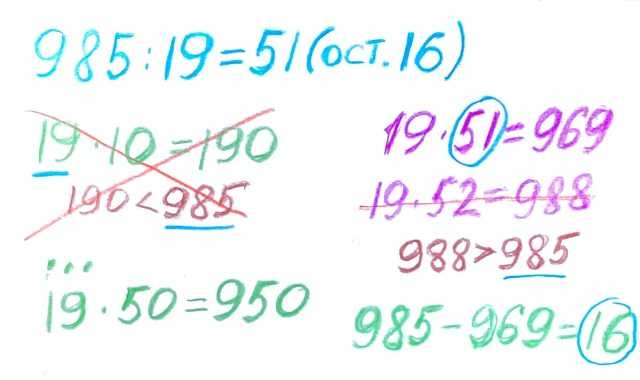 985:19=51(ост.16)
19·10=190
190<985
...
19·50=950
19·51=969
19·52=988
988>985
985-969=16